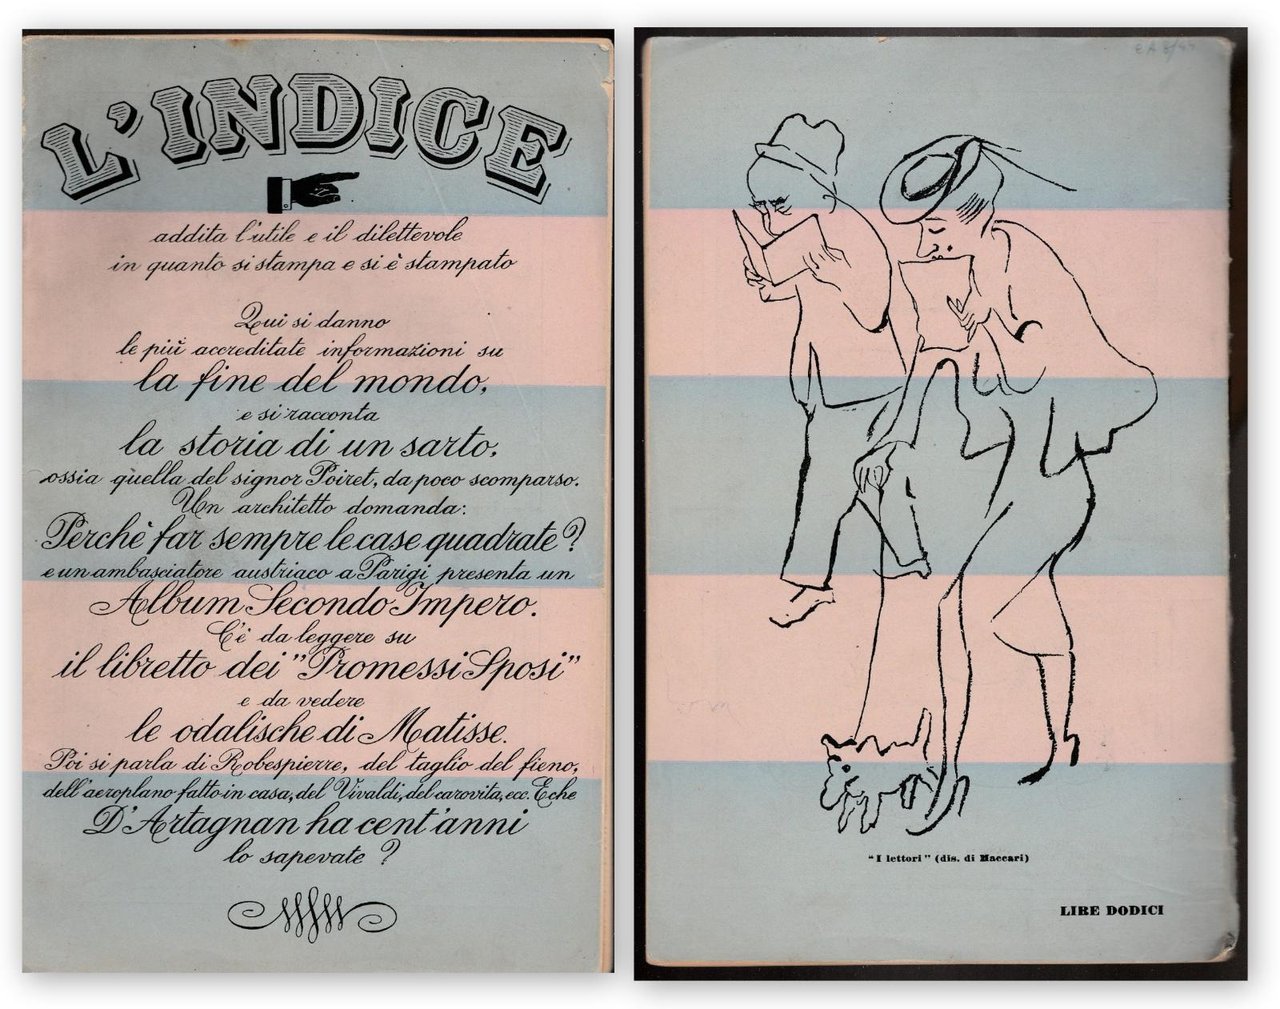 L'INDICE
addita l'utile e il dilettevole
in quanto si stampa e si è stampato
Qui si danno
le più accreditate informazioni su
la fine del mondo,
e si racconta
la storia di un sarto,
ossia quella del signor Poiret, da poco scomparso.
Un architetto domanda:
Perchè far sempre le case quadrate?
e un ambasciatore austriaco a Parigi presenta un
Album Secondo Impero.
C'è da leggere su
il libretto dei "Promessi Sposi"
e da vedere
le odalische di Matisse.
Poi si parla di Robespierre, del taglio del fieno,
dell'aeroplano fatto in casa, del Vivaldi, del carovita, ecc. E che
D'Artagnan ha cent'anni
lo sapevate?
"I lettori" (dis. di Maccari)
LIRE DODICI